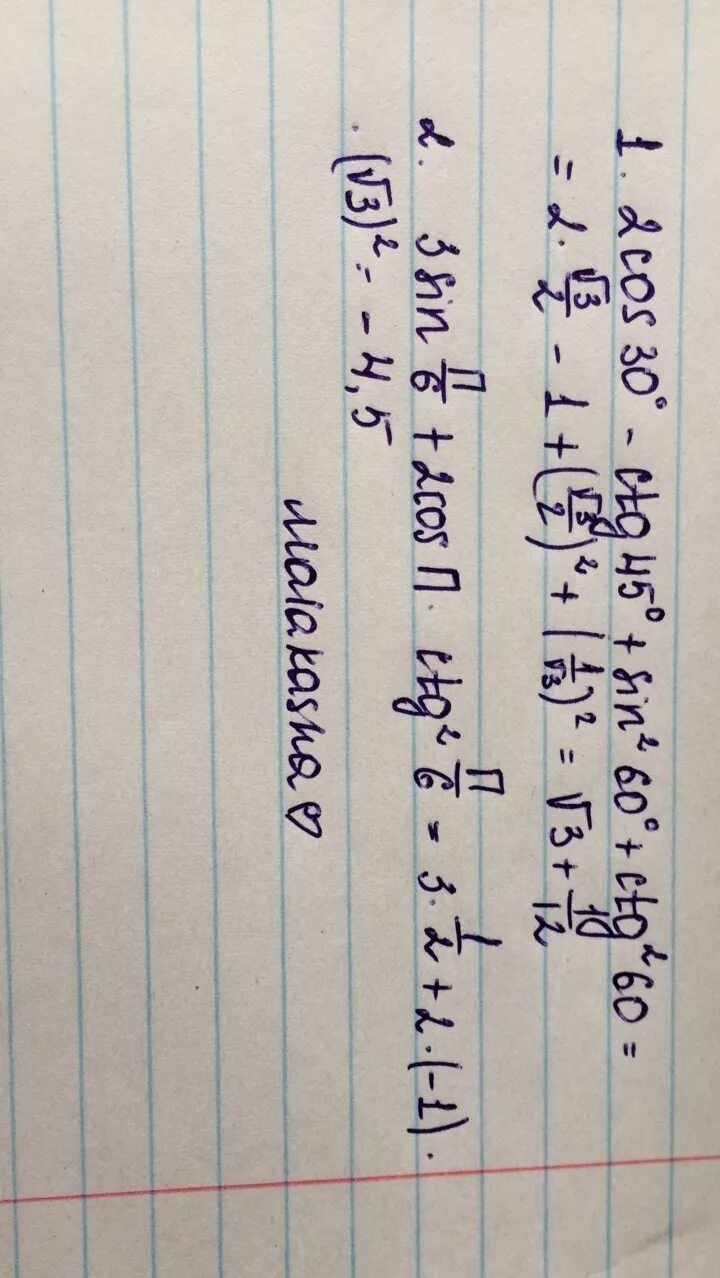 1. 2cos 30° - ctg 45° + sin² 60° + ctg² 60 =
= 2 · √3/2 - 1 + (√3/2)² + (1/√3)² = √3 + 10/12
2. 3 sin П/6 + 2cos П · ctg² П/6 = 3 · 1/2 + 2 · (-1) ·
· (√3)² = - 4,5
Malakasha♡